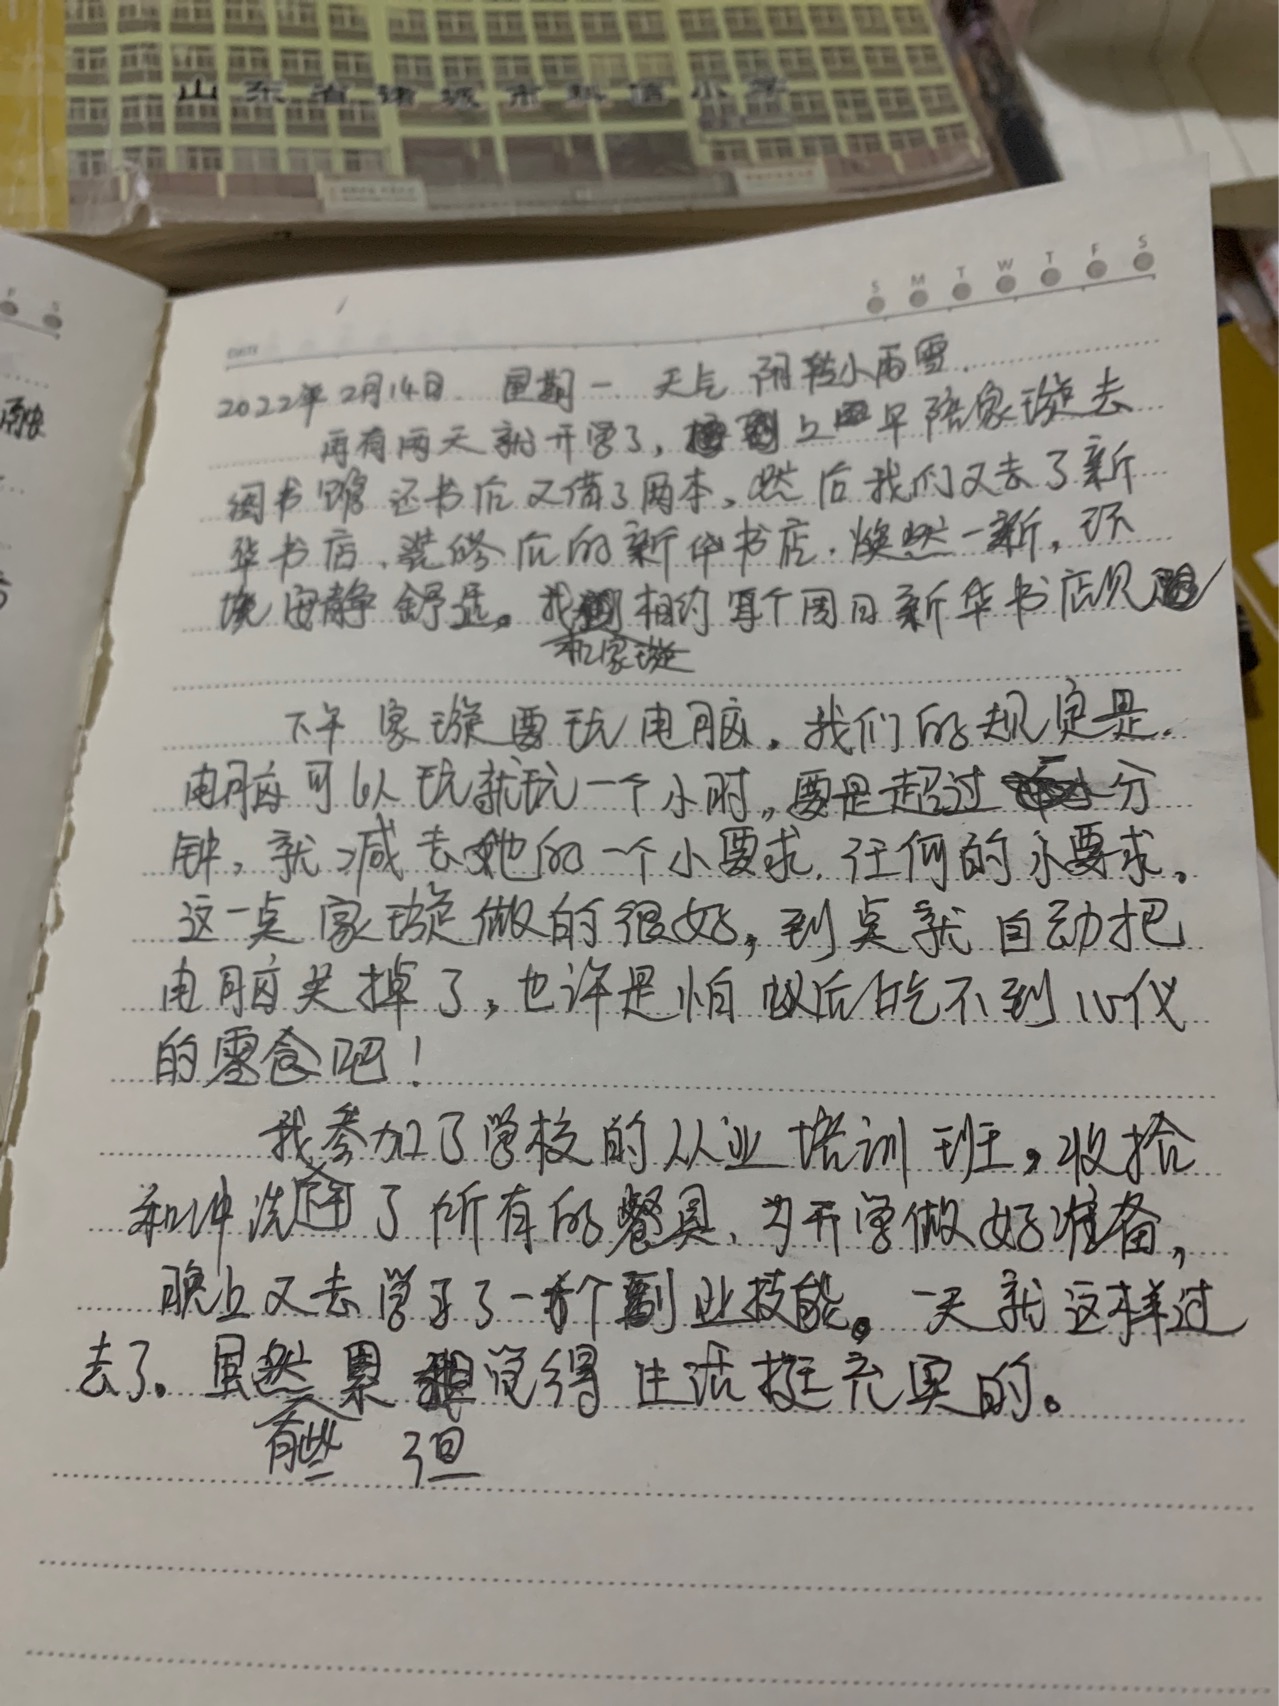 山东省诸城市科信小学
S M T W T F S
DATE
2022年2月14日 星期一 天气 阴转小雨雪.
再有两天就开学了,上早陪家璇去
图书馆还书后又借了两本,然后我们又去了新
华书店,装修后的新华书店,焕然一新,环
境安静舒适。我和家璇相约每个周日新华书店见
下午家璇要玩电脑,我们的规定是,
电脑可以玩就玩一个小时,要是超过分
钟,就减去她的一个小要求,任何的小要求。
这一点家璇做的很好,到点就自动把
电脑关掉了,也许是怕以后吃不到心仪
的零食吧!
我参加了学校的从业培训班,收拾
和冲洗了所有的餐具,为开学做好准备,
晚上又去学习了一个副业技能。一天就这样过
去了。虽然有些累但觉得生活挺充实的。